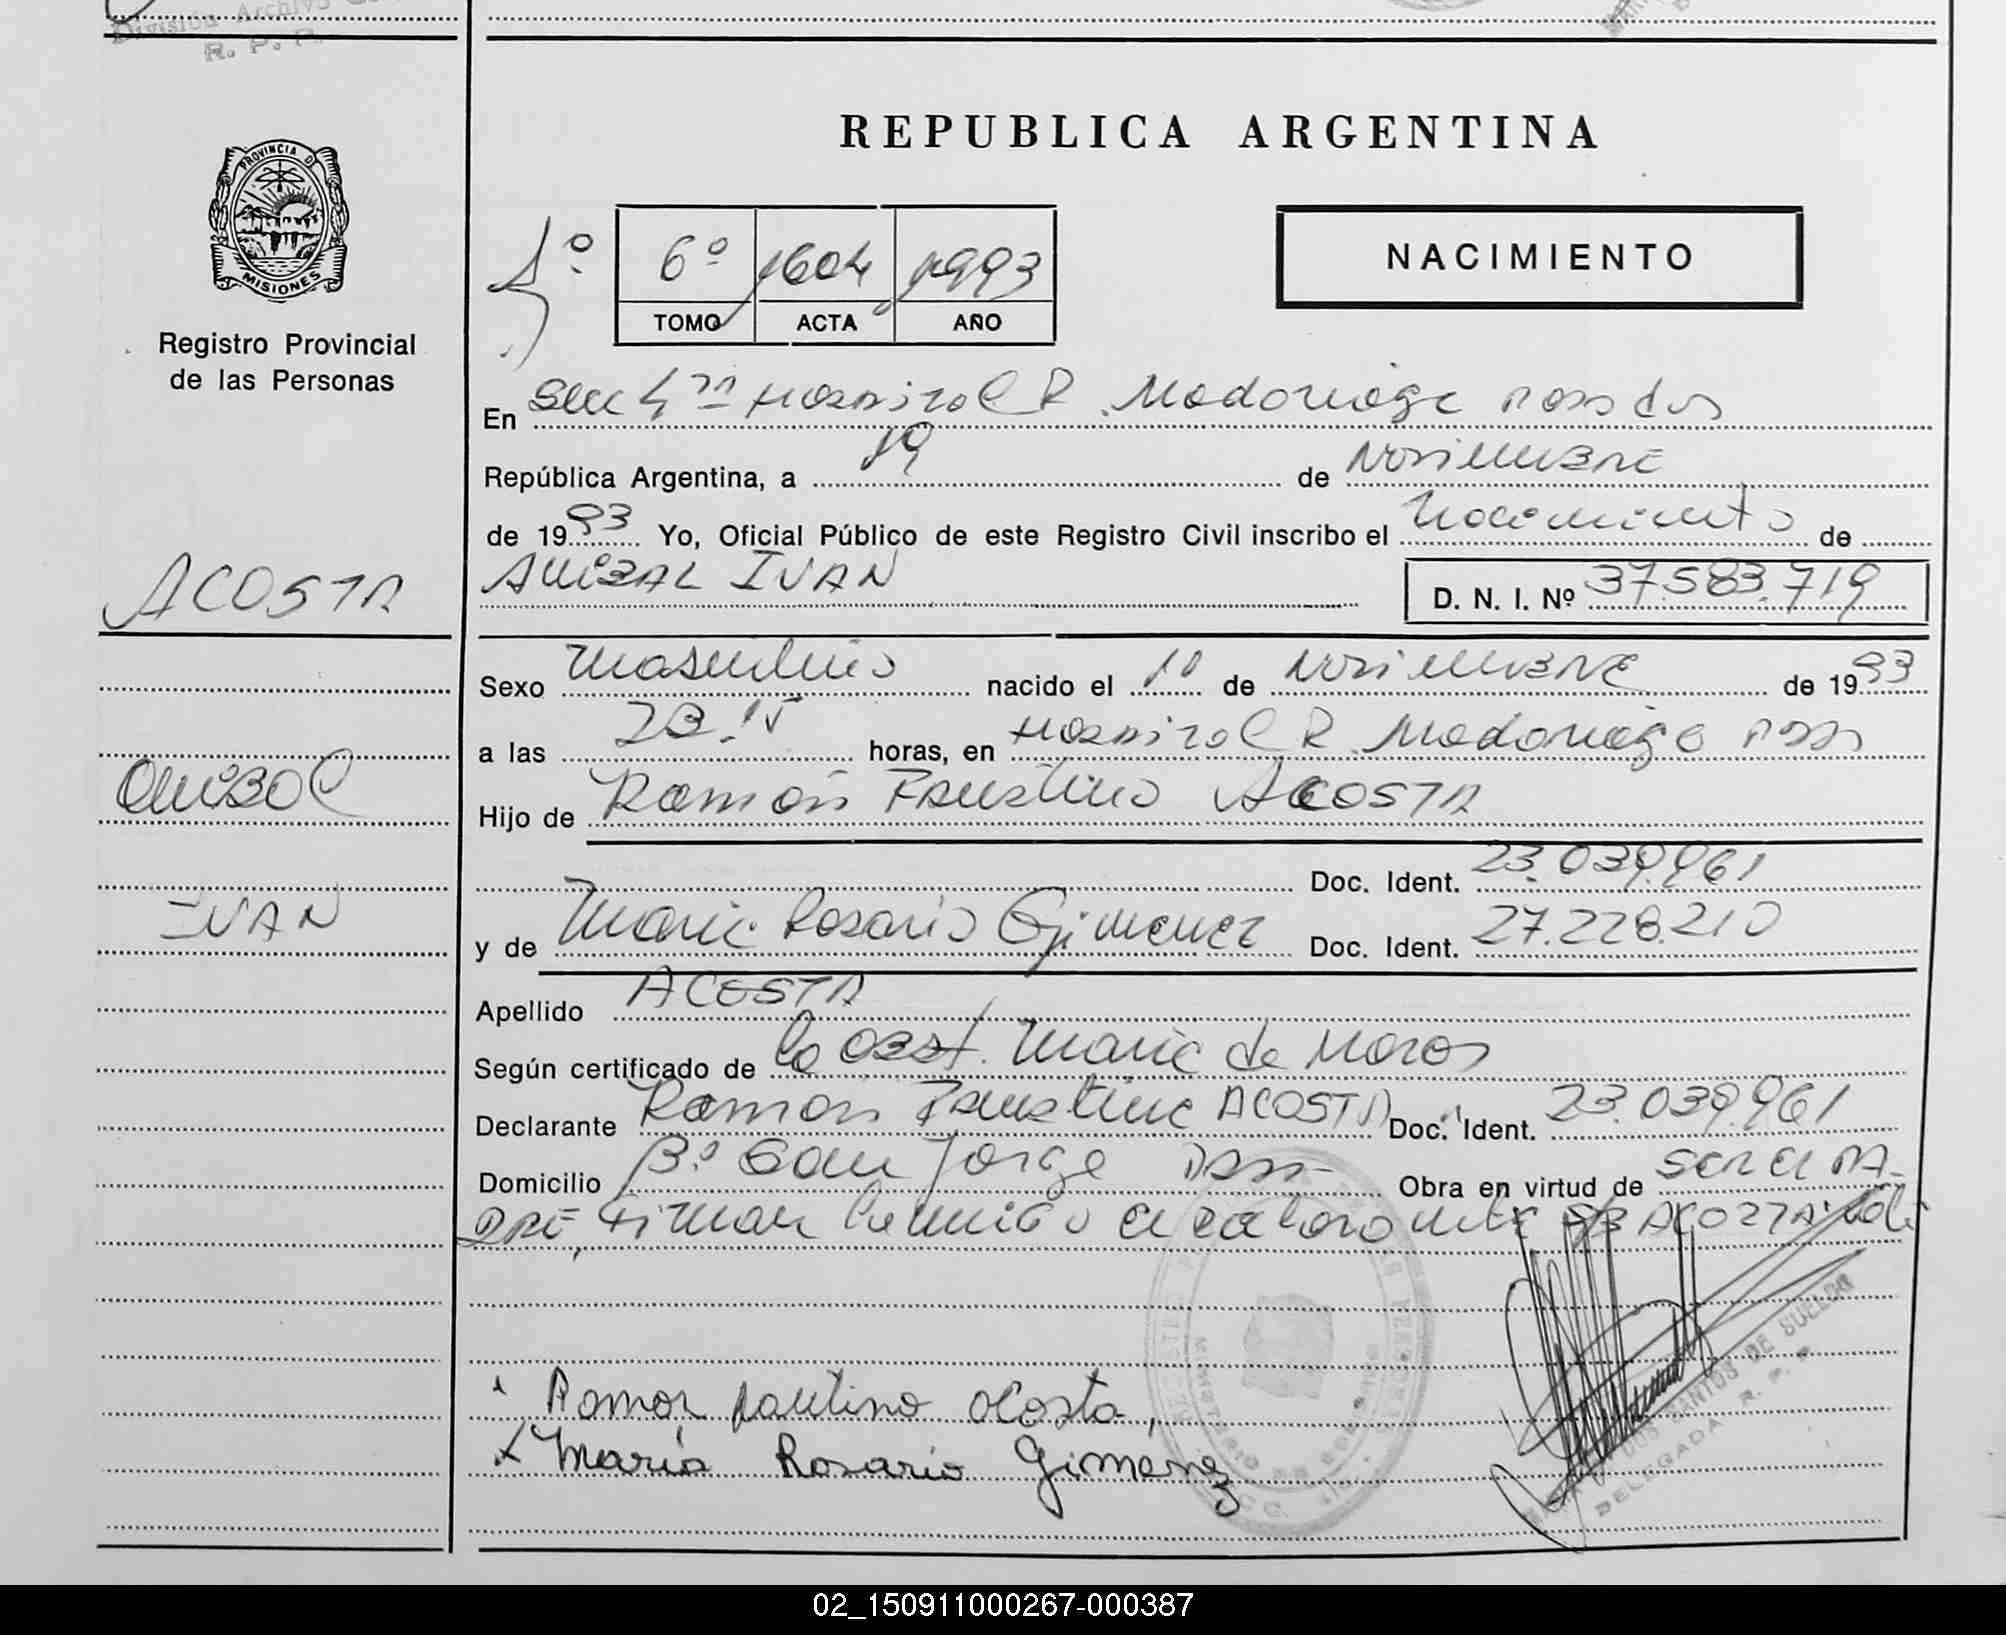 División Archivo
R. P. P.
REPUBLICA ARGENTINA
PROVINCIA D
MISIONES
Registro Provincial
de las Personas
6º 1604 1993
TOMO ACTA AÑO
NACIMIENTO
En Secc 4ta Hospital R. Madariaga Posadas
República Argentina, a 19 de Noviembre
de 1993 Yo, Oficial Público de este Registro Civil inscribo el Nacimiento de
ANIBAL IVAN
D. N. I. Nº 37.583.719
ACOSTA
Anibal
IVAN
Sexo Masculino nacido el 10 de Noviembre de 1993
a las 23.15 horas, en Hospital R. Madariaga Pdas
Hijo de Ramón Faustino ACOSTA
Doc. Ident. 23.039.961
y de Maria Rosario Gimenez Doc. Ident. 27.228.210
Apellido ACOSTA
Según certificado de la Obst. Maria de
Declarante Ramón Faustino ACOSTA Doc. Ident. 23.039.961
Domicilio Bº San Jorge Pdas Obra en virtud de ser el PA-
DRE, Firman
Ramon Fautino Acosta,
x María Rosario Giménez
SANTOS DE SUELDO
DELEGADA R. P. P.
02_150911000267-000387